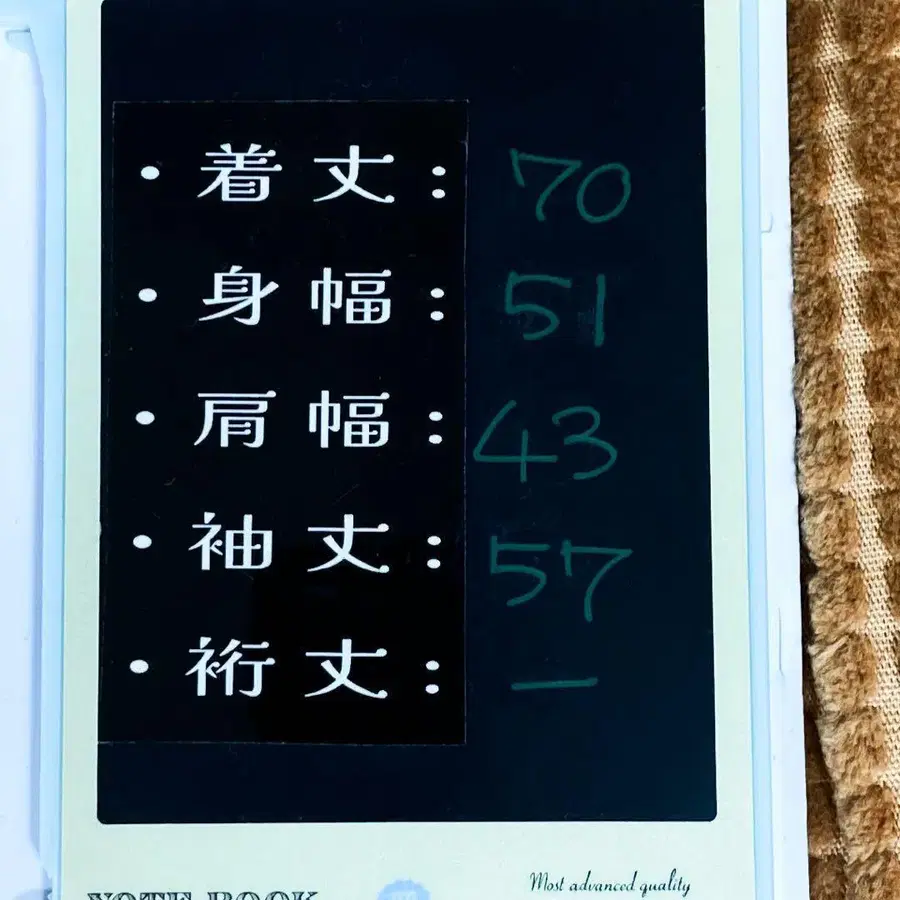 ・着丈: 70
・身幅: 51
・肩幅: 43
・袖丈: 57
・裄丈: —
Most advanced quality